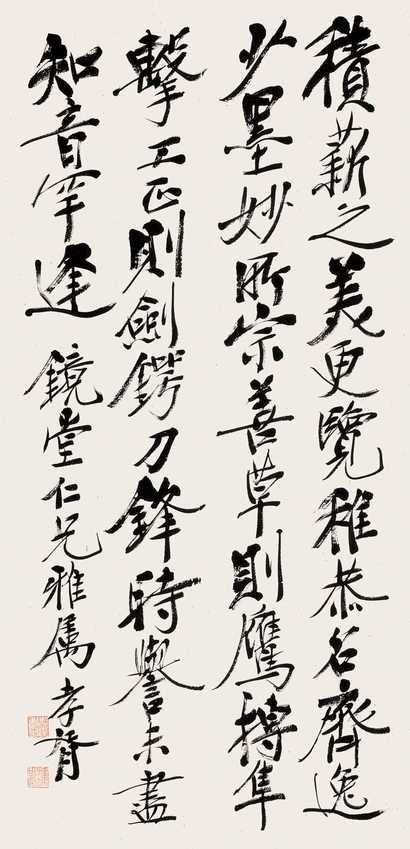 積薪之美更覽稚恭名齊逸
少墨妙所宗善草則鷹搏隼
擊工正則劍鍔刀鋒時譽未盡
知音罕逢 鏡堂仁兄雅属 孝胥